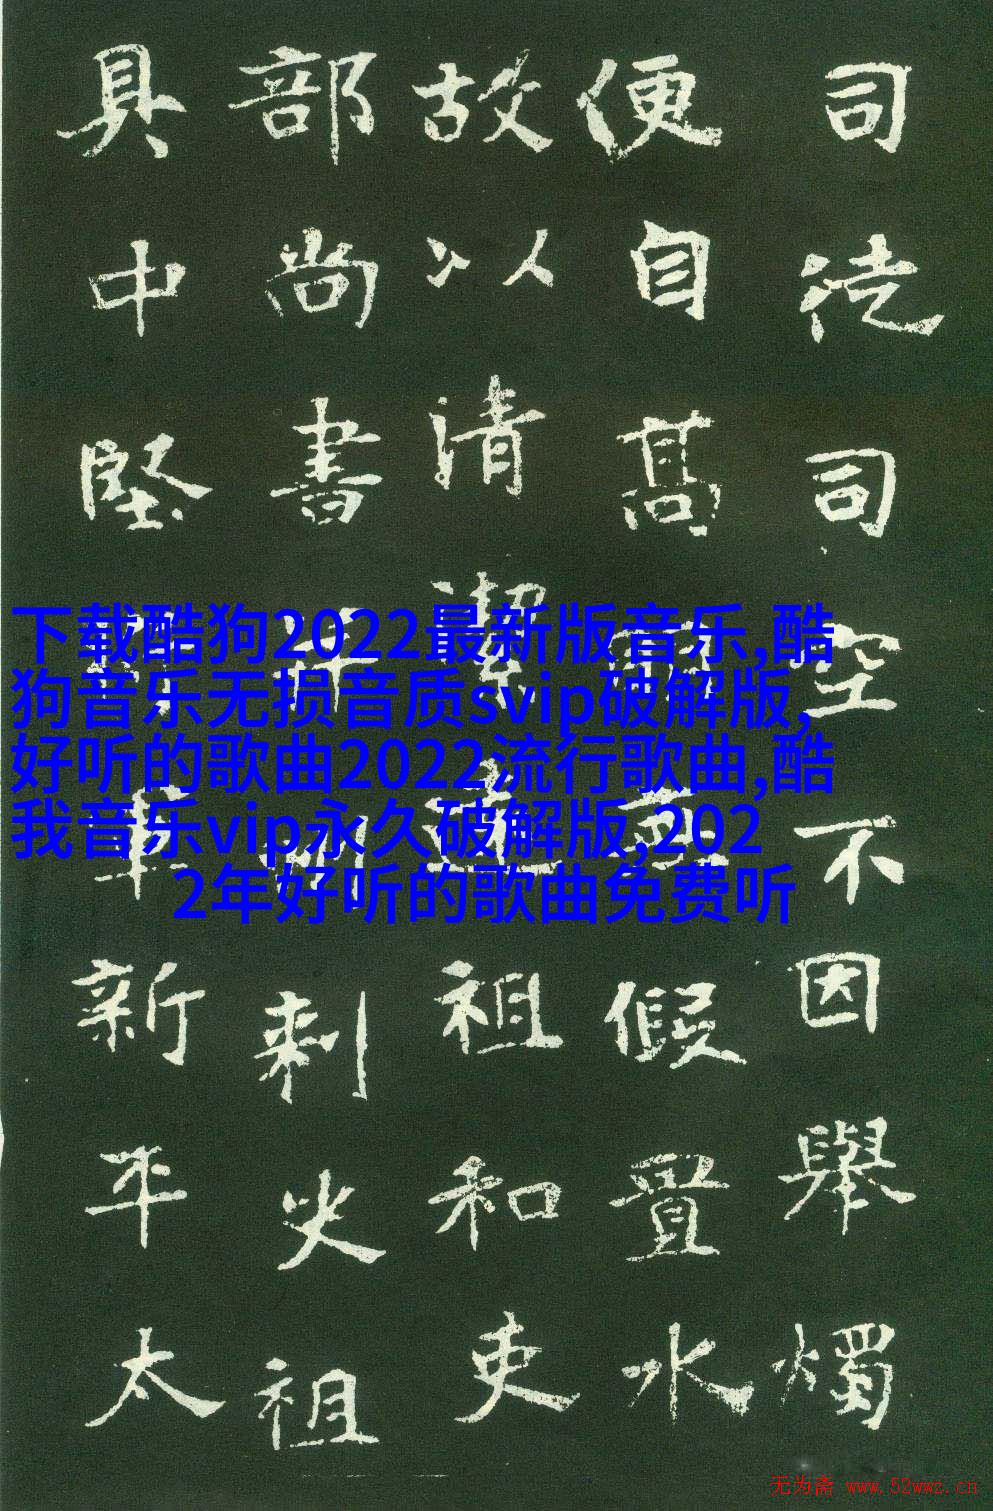 司徒司空不因舉燭
便自高假置水
故以清潔祖和吏
部尚書刺史祖
具中堅軍新平太
下载酷狗2022最新版音乐,酷
狗音乐无损音质svip破解版,
好听的歌曲2022流行歌曲,酷
我音乐vip永久破解版,202
2年好听的歌曲免费听
无为斋 www.52wwz.cn